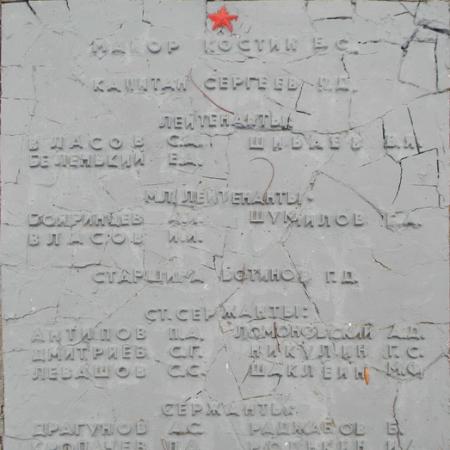 МАЙОР КОСТИН Е.С.
КАПИТАН СЕРГЕЕВ
ЛЕЙТЕНАНТЫ:
ВЛАСОВ С.А. ШИБАЕВ В.И.
БЕЛЕНЬКИЙ Е.Д.
МЛ. ЛЕЙТЕНАНТЫ:
БОЯРИНЦЕВ ШУМИЛОВ
ВЛАСОВ И.И.
СТАРШИНА ВОТИНОВ П.Д.
СТ. СЕРЖАНТЫ:
АНТИПОВ П.Д. ЛОМОНОВСКИЙ А.Д.
ДМИТРИЕВ С.Г. НИКУЛИН Г.С.
ЛЕВАШОВ С.С. ШАКЛЕИН М.И.
СЕРЖАНТЫ:
ДРАГУНОВ А.С. РАДЖАБОВ Б.